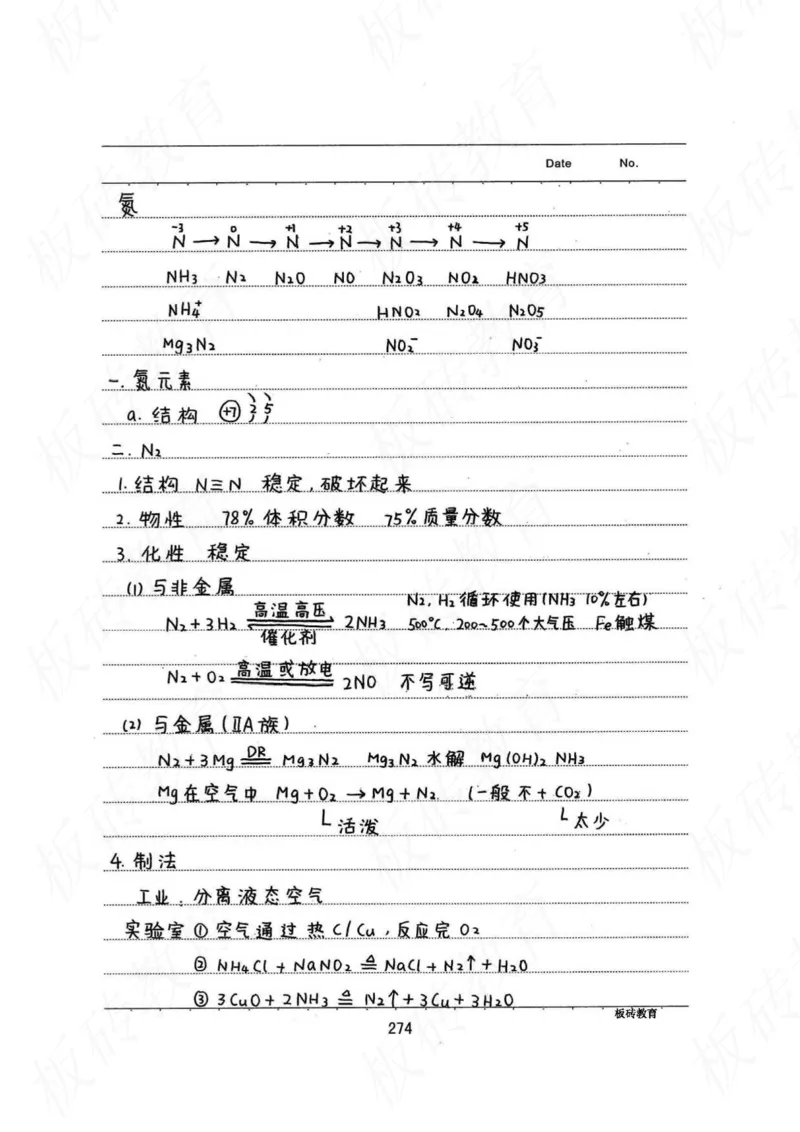 Date No.
氮
-3 0 +1 +2 +3 +4 +5
N → N → N → N → N → N → N
NH3 N2 N2O NO N2O3 NO2 HNO3
NH4+ HNO2 N2O4 N2O5
Mg3N2 NO2- NO3-
一. 氮元素
a. 结构 +7 2 5
二. N2
1. 结构 N≡N 稳定,破坏起来
2. 物性 78%体积分数 75%质量分数
3. 化性 稳定
(1) 与非金属
N2, H2循环使用(NH3 10%左右)
N2+3H2 高温高压 ⇌ 催化剂 2NH3 500℃. 200~500个大气压 Fe触煤
N2+O2 高温或放电 == 2NO 不写可逆
(2) 与金属(ⅡA族)
N2+3Mg 点燃 == Mg3N2 Mg3N2水解 Mg(OH)2 NH3
Mg在空气中 Mg+O2 → Mg+N2 (一般不+CO2)
活泼 太少
4. 制法
工业:分离液态空气
实验室 ① 空气通过热C/Cu,反应完O2
② NH4Cl + NaNO2 ≜ NaCl + N2↑ + H2O
③ 3CuO + 2NH3 ≜ N2↑ + 3Cu + 3H2O
板砖教育
274
板砖教育